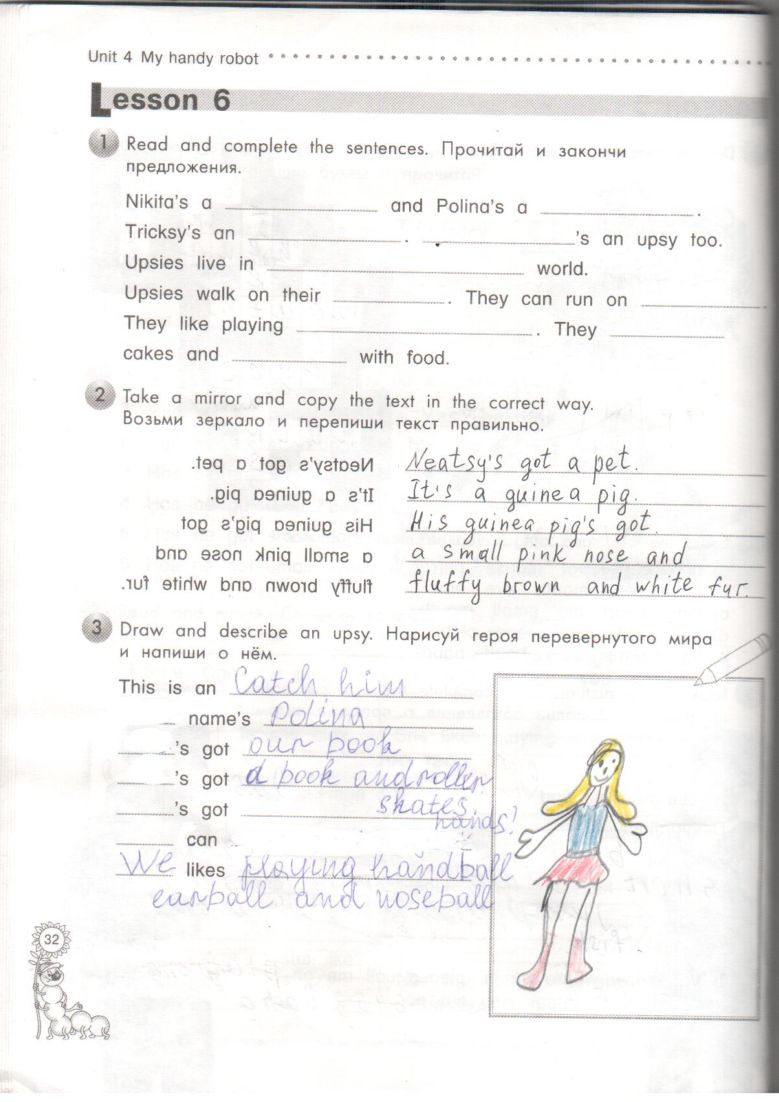 Unit 4 My handy robot
Lesson 6
1 Read and complete the sentences. Прочитай и закончи
предложения.
Nikita's a and Polina's a .
Tricksy's an . 's an upsy too.
Upsies live in world.
Upsies walk on their . They can run on
They like playing . They
cakes and with food.
2 Take a mirror and copy the text in the correct way.
Возьми зеркало и перепиши текст правильно.
Neatsy's got a pet. Neatsy's got a pet.
It's a guinea pig. It's a guinea pig.
His guinea pig's got His guinea pig's got.
a small pink nose and a small pink nose and
fluffy brown and white fur. fluffy brown and white fur.
3 Draw and describe an upsy. Нарисуй героя перевернутого мира
и напиши о нём.
This is an Catch him
name's Polina
's got our book
's got a book and roller
's got skates.
hands!
can
We likes playing handball
earball and noseball
32